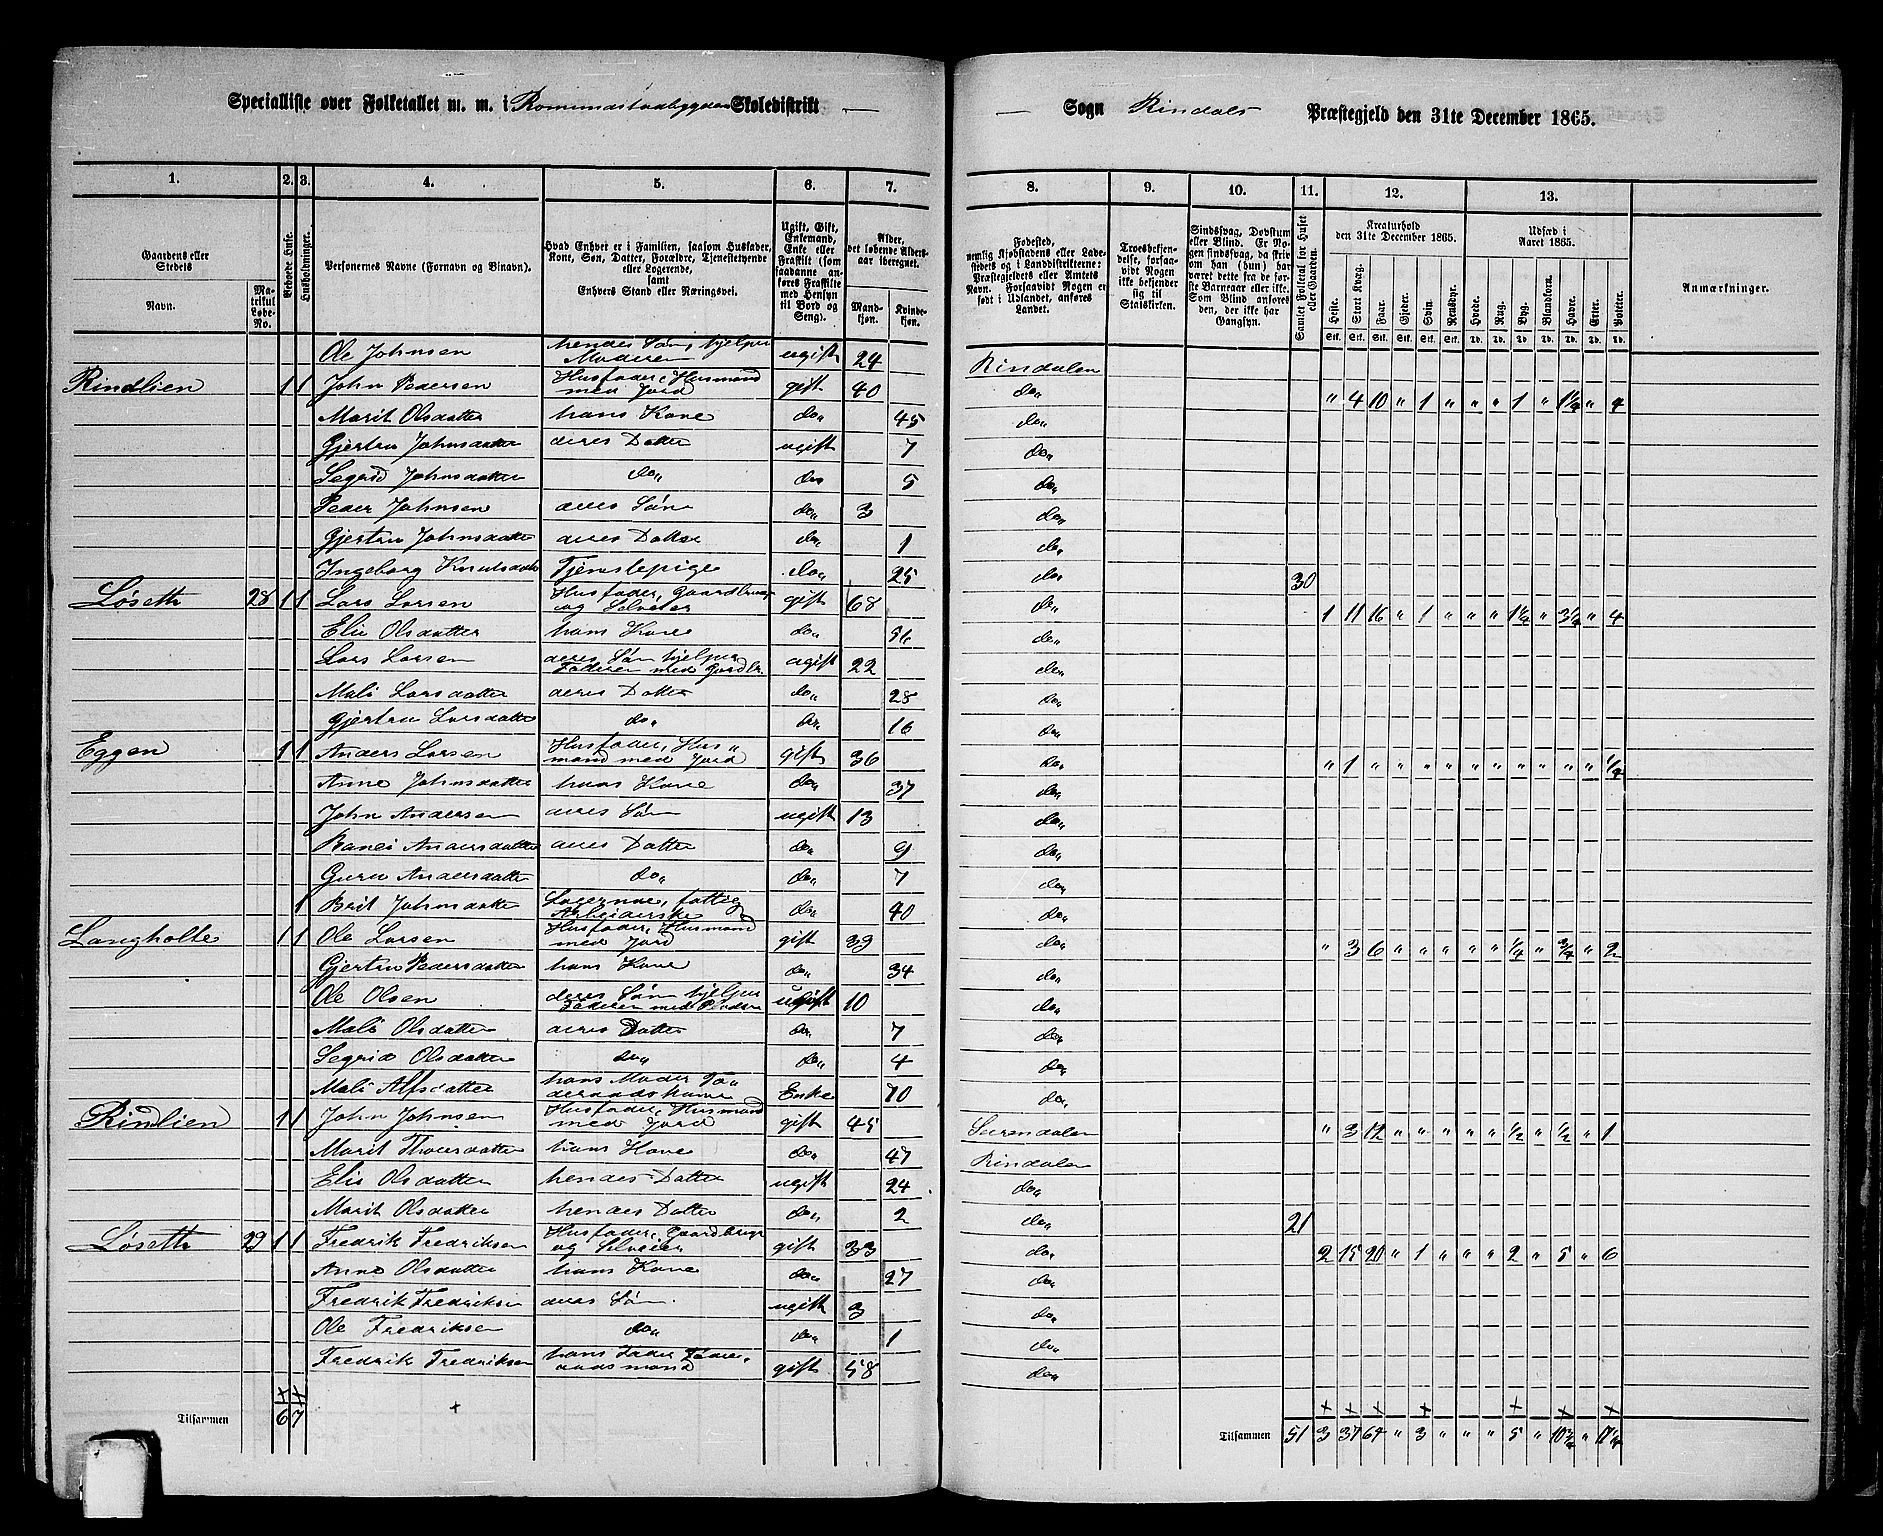 Specialliste over Folketallet m. m. i Romundstadbygden Skoledistrikt — — Sogn Rindals Præstegjeld den 31te December 1865.
1. 2. 3. 4. 5. 6. 7. 8. 9. 10. 11. 12. 13.
Gaardens eller Stedets Navn. Matrikul Løbe-No. Beboede Huse. Husholdninger. Personernes Navne (Fornavn og Binavn).
Hvad Enhver er i Familien, saasom Husfader, Kone, Søn, Datter, Forældre, Tjenestetyende eller Logerende, samt Enhvers Stand eller Næringsvei.
Ugift, Gift, Enkemand, Enke eller Fraskilt (som saadanne anføres Fraskilte med Hensyn til Bord og Seng).
Alder, det løbende Aldersaar iberegnet. Mandkjøn. Kvindekjøn.
Fødested, nemlig Kjøbstadens eller Ladestedets og i Landdistrikterne: Præstegjeldets eller Amtets Navn. Forsaavidt Nogen er født i Udlandet, anføres Landet.
Troesbekjendelse, forsaavidt Nogen ikke bekjender sig til Statskirken.
Sindssvag, Døvstum eller Blind. Er Nogen sindssvag, da skrives om han (hun) har været dette fra de første Barneaar eller ikke. Som Blind anføres den, der ikke har Gangsyn.
Samlet Folketal for Huset eller Gaarden.
Kreaturhold den 31te December 1865. Heste. Stort Kvæg. Faar. Gjeder. Svin. Rensdyr.
Udsæd i Aaret 1865. Hvede. Rug. Byg. Blandkorn. Havre. Erter. Poteter.
Anmærkninger.
Ole Johnsen hendes Søn, hjelper Moderen ugift 24 Rindalen
Rindlien 1 1 John Pedersen Husfader, Husmand med Jord gift 40 do„ „ 4 10 „ 1 „ „ „ 1 „ 1¼ „ 4
Marit Olsdatter hans Kone do„ 45 do„
Gjertru Johnsdatter deres Datter ugift 7 do„
Segrid Johnsdatter do„ do 5 do„
Peder Johnsen deres Søn do„ 3 do„
Gjertru Johnsdatter deres Datter do„ 1 do„
Ingeborg Knutsdatter Tjenstepige do„ 25 do„ 30
Løseth 28 1 1 Lars Larsen Husfader, Gaardbruger og Selveier gift 68 do„ 1 11 16 „ 1 „ „ „ 1¼ „ 3¼ „ 4
Elie Olsdatter hans Kone do„ do„
Lars Larsen deres Søn hjelper Faderen med Gardbr. ugift 22 do„
Mali Larsdatter deres Datter do„ 28 do„
Gjertru Larsdatter do„ do„ 16 do„
Eggen 1 1 Anders Larsen Husfader, Husmand med Jord gift 36 do„ „ 1 „ „ „ „ „ „ „ „ „ „ ¼
Anne Johnsdatter hans Kone do„ 37 do„
John Andersen deres Søn ugift 13 do„
Ranei Andersdatter deres Datter do„ 9 do„
Guru Andersdatter do„ do„ 7 do„
1 Brit Johnsdatter Logerende, fattig Arbeiderske do„ 40 do„
Langholte 1 1 Ole Larsen Husfader, Husmand med Jord gift 39 do„ „ 3 6 „ „ „ „ „ ¼ „ ¾ „ 2
Gjertru Pedersdatter hans Kone do„ 34 do„
Ole Olsen deres Søn hjelper Faderen med ugift 10 do„
Mali Olsdatter deres Datter do„ 7 do„
Segrid Olsdatter do„ do„ 4 do„
Mali Alfsdatter hans Moder Føderaadskone Enke 70 do„
Rindlien 1 1 John Johnsen Husfader, Husmand med Jord gift 45 Surendalen „ 3 12 „ „ „ „ „ ½ „ ½ „ 1
Marit Thoersdatter hans Kone do„ 47 Rindalen
Elie Olsdatter hendes Datter ugift 24 do„
Marit Olsdatter hendes Datter do„ 2 do„ 21
Løseth 29 1 1 Fredrik Fredriksen Husfader, Gaardbruger og Selveier gift 33 do„ 2 15 20 „ 1 „ „ „ 2 „ 5 „ 6
Anne Olsdatter hans Kone do„ 27 do„
Fredrik Fredriksen deres Søn ugift 3 do„
Ole Fredriksen do„ do„ 1 do„
Fredrik Fredriksen hans Fader Føderaadsmand gift 58 do„
Tilsammen 6 7 Tilsammen 51 3 37 64 „ 3 „ „ „ 5 „ 10¾ „ 17¼